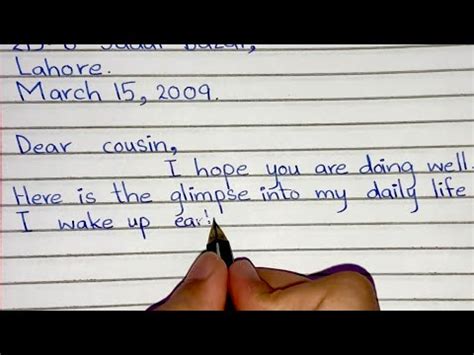 Lahore.
March 15, 2009.
Dear cousin,
I hope you are doing well.
Here is the glimpse into my daily life
I wake up